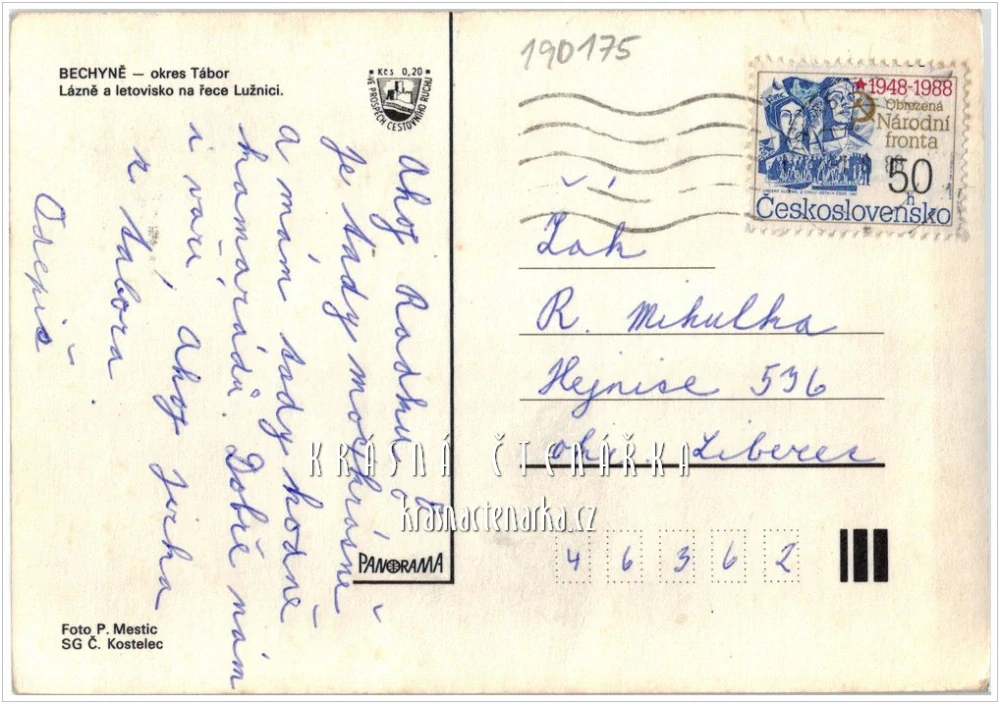 190175
BECHYNĚ — okres Tábor
Lázně a letovisko na řece Lužnici.
Kčs 0,20
VE PROSPĚCH CESTOVNÍHO RUCHU
1948-1988
Obrozená
Národní
fronta
50
h
Československo
Ahoj Radku
Je tády moc krásně
a mám tody hodně
kamarádů. Dobře nám
i vaří Ahoj jirka
z tábora
Odepiš.
Žák
R. Mikulka
Hejnice 536
ok. Liberec
46362
KRÁSNÁ ČTENÁŘKA
krasnactenarka.cz
PANORAMA
Foto P. Mestic
SG Č. Kostelec